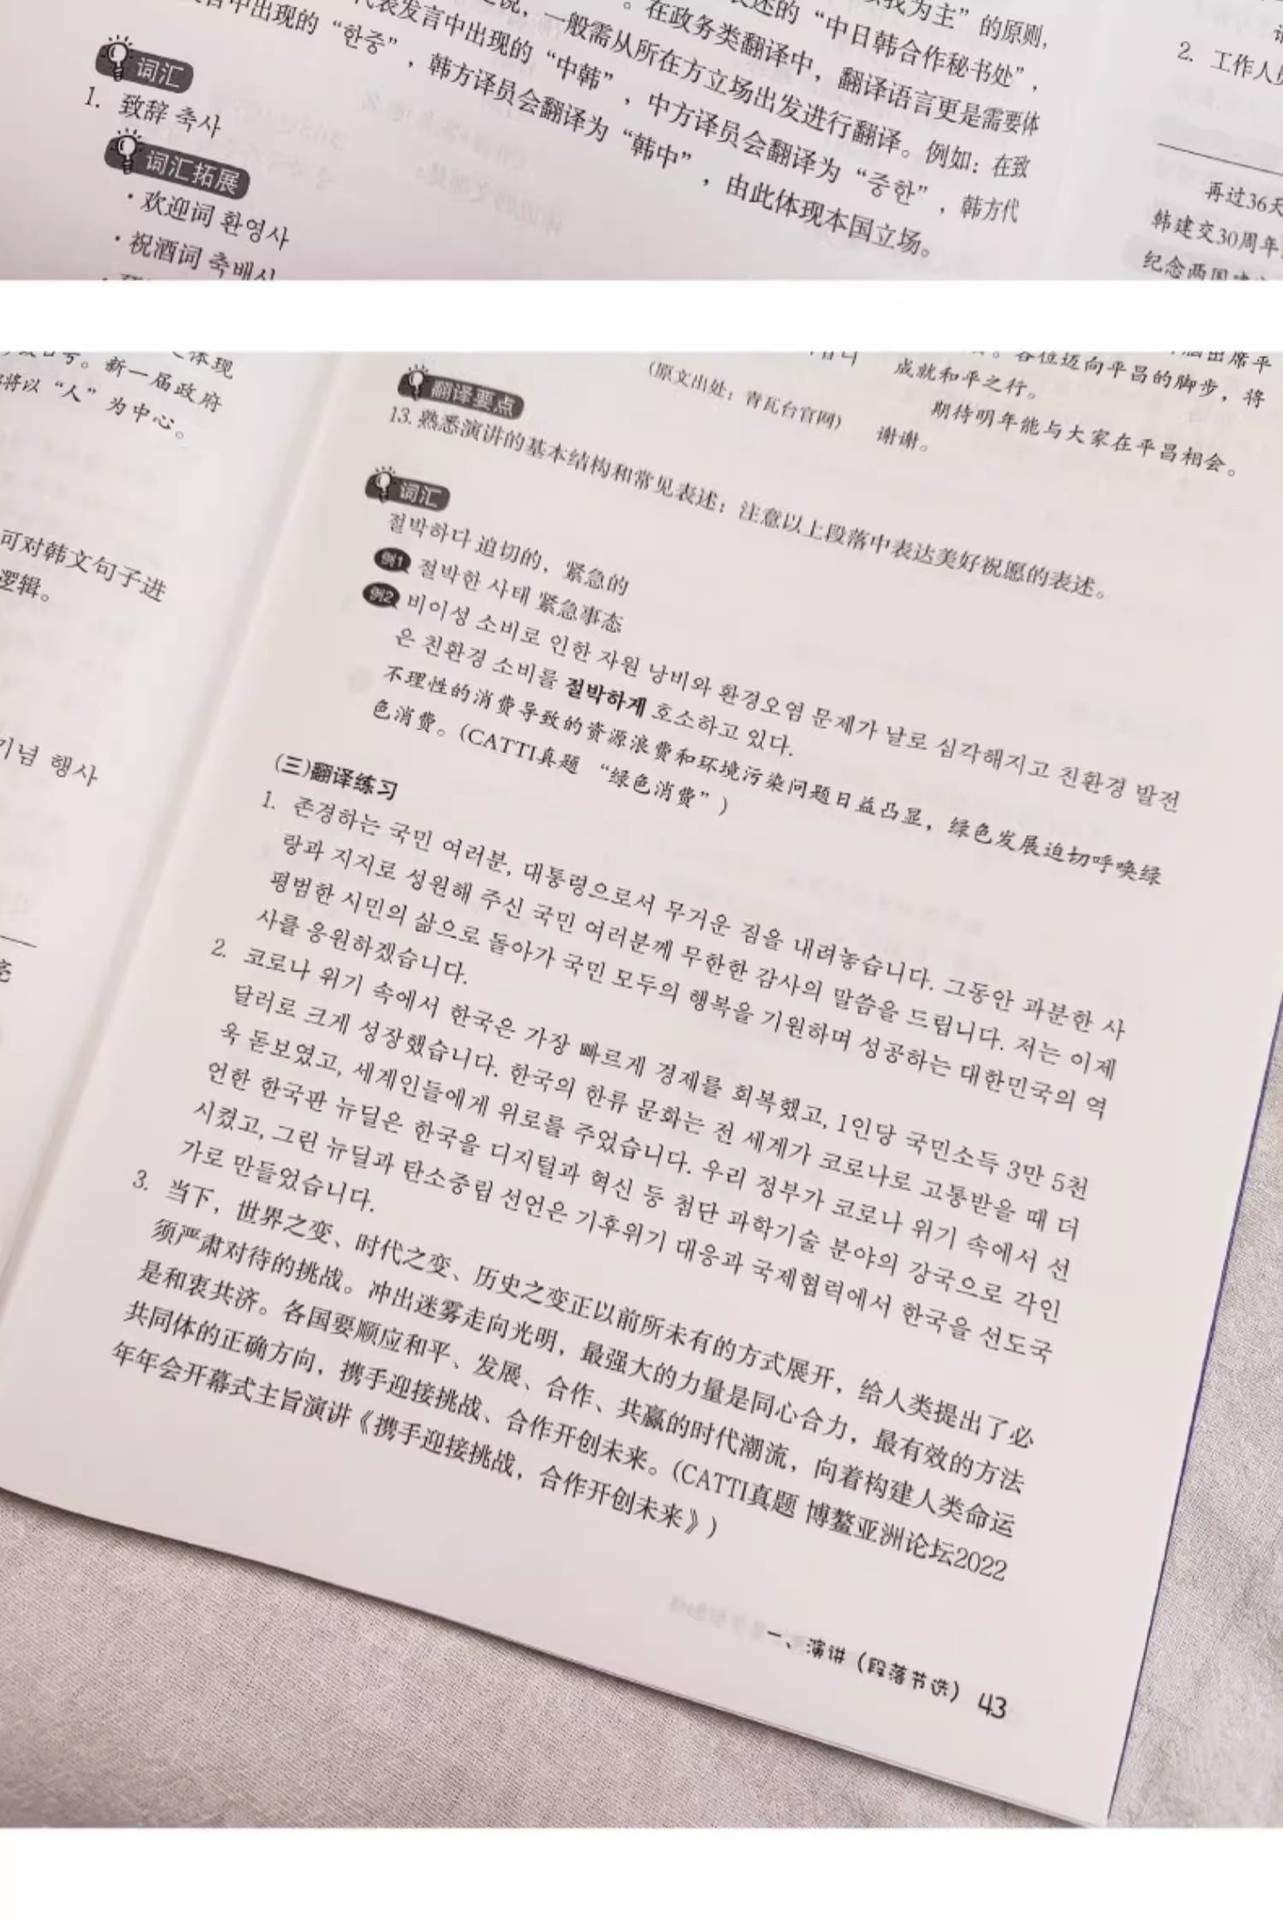 找为主”的原则,
述的“中日韩合作秘书处”,
。在政务类翻译中，翻译语言更是需要体
之说，一般需从所在方立场出发进行翻译。例如：在致
代表发言中出现的“中韩”，中方译员会翻译为“중한”，韩方代
言中出现的“한중”，韩方译员会翻译为“韩中”，由此体现本国立场。
词汇
1. 致辞 축사
词汇拓展
·欢迎词 환영사
·祝酒词 축배사
2. 工作人员
再过36天
韩建交30周年
纪念两国建
体现
。新一届政府
将以“人”为中心。
可对韩文句子进
逻辑。
기념 행사
出席平
。各位迈向平昌的脚步，将
成就和平之行。
期待明年能与大家在平昌相会。
谢谢。
(原文出处：青瓦台官网)
翻译要点
13. 熟悉演讲的基本结构和常见表述；注意以上段落中表达美好祝愿的表述。
词汇
절박하다 迫切的，紧急的
例1 절박한 사태 紧急事态
例2 비이성 소비로 인한 자원 낭비와 환경오염 문제가 날로 심각해지고 친환경 발전
은 친환경 소비를 절박하게 호소하고 있다.
不理性的消费导致的资源浪费和环境污染问题日益凸显，绿色发展迫切呼唤绿
色消费。(CATTI真题 “绿色消费”)
(三)翻译练习
1. 존경하는 국민 여러분, 대통령으로서 무거운 짐을 내려놓습니다. 그동안 과분한 사
랑과 지지로 성원해 주신 국민 여러분께 무한한 감사의 말씀을 드립니다. 저는 이제
평범한 시민의 삶으로 돌아가 국민 모두의 행복을 기원하며 성공하는 대한민국의 역
사를 응원하겠습니다.
2. 코로나 위기 속에서 한국은 가장 빠르게 경제를 회복했고, 1인당 국민소득 3만 5천
달러로 크게 성장했습니다. 한국의 한류 문화는 전 세계가 코로나로 고통받을 때 더
욱 돋보였고, 세계인들에게 위로를 주었습니다. 우리 정부가 코로나 위기 속에서 선
언한 한국판 뉴딜은 한국을 디지털과 혁신 등 첨단 과학기술 분야의 강국으로 각인
시켰고, 그린 뉴딜과 탄소중립 선언은 기후위기 대응과 국제협력에서 한국을 선도국
가로 만들었습니다.
3. 当下，世界之变、时代之变、历史之变正以前所未有的方式展开，给人类提出了必
须严肃对待的挑战。冲出迷雾走向光明，最强大的力量是同心合力，最有效的方法
是和衷共济。各国要顺应和平、发展、合作、共赢的时代潮流，向着构建人类命运
共同体的正确方向，携手迎接挑战、合作开创未来。(CATTI真题 博鳌亚洲论坛2022
年年会开幕式主旨演讲《携手迎接挑战，合作开创未来》)
一、演讲（段落节选） 43